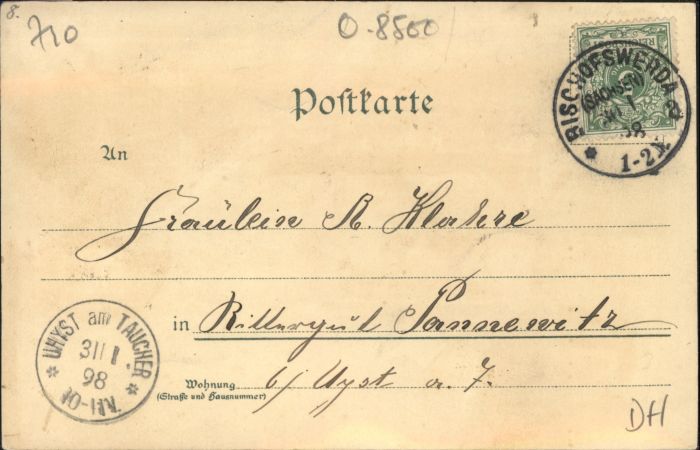 8.
710
O-8500
REICHSPOST
BISCHOFSWERDA
(SACHSEN)
1
98
1-2N.
Postkarte
An
Fräulein A. Klahre
in Rittergut Pannewitz
Wohnung
(Straße und Hausnummer)
b/ Uyst a. T.
UHYST am TAUCHER
31/1
98
DH